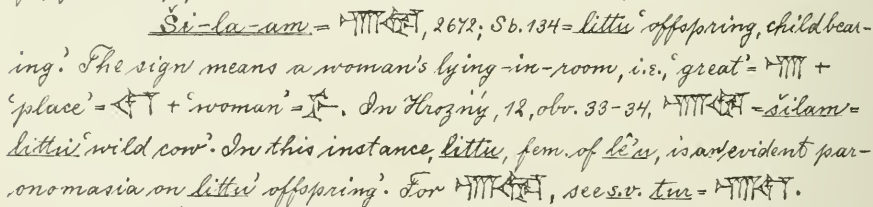 Ši-la-am =      , 2672; Sb. 134 = littu 'offspring, childbear-
ing'. The sign means a woman's lying-in-room, i.e., 'great' =      +
'place' =      + 'woman' =      . In Hrozný, 12, obv. 33-34,      = šilam =
littu 'wild cow'. In this instance, littu, fem. of lê'u, is an evident par-
onomasia on littu 'offspring'. For      , see s.v. tur =      .